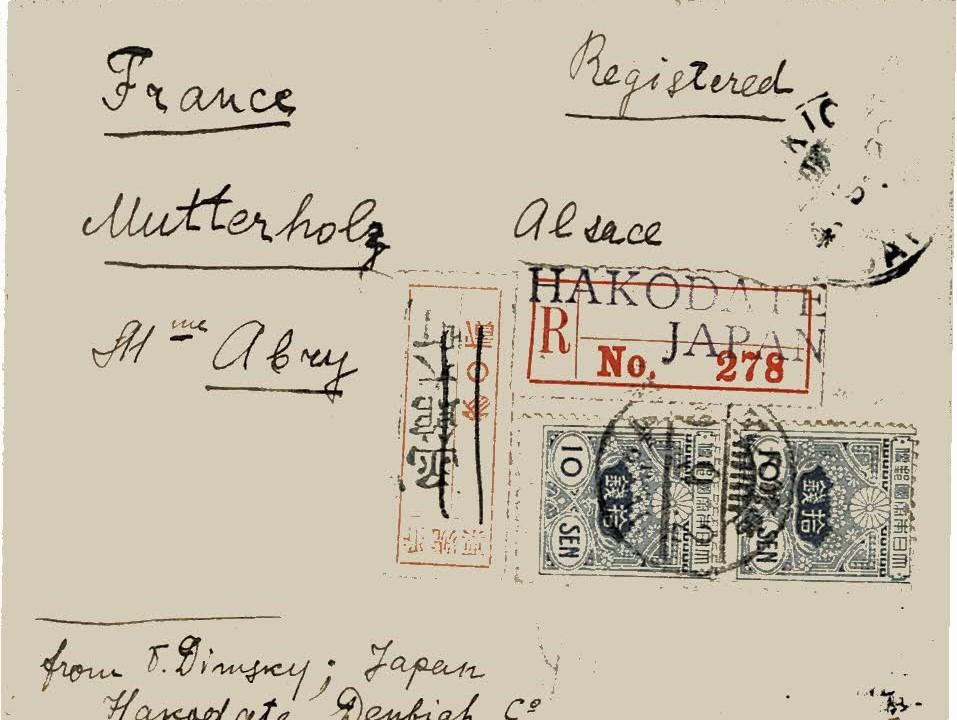 France Registered
Mutterholz Alsace
Mme Abry
HAKODATE
JAPAN
R No. 278
10 SEN 拾銭
10 SEN 拾銭
大日本帝國郵便
大日本帝國郵便
from T. Dimsky; Japan
Hakodate Denbigh Co